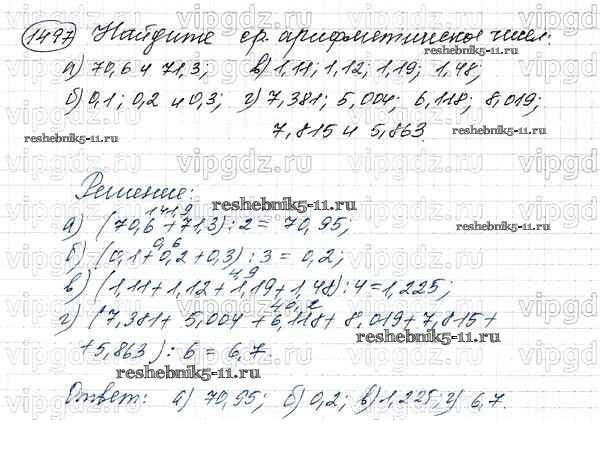 1497 Найдите ср. арифметическое чисел:
а) 70,6 и 71,3; в) 1,11; 1,12; 1,19; 1,48;
б) 0,1; 0,2 и 0,3; г) 7,381; 5,004; 6,118; 8,019;
7,815 и 5,863.
reshebnik5-11.ru
reshebnik5-11.ru
reshebnik5-11.ru
Решение:
reshebnik5-11.ru
141,9
а) (70,6 + 71,3) : 2 = 70,95;
reshebnik5-11.ru
0,6
б) (0,1 + 0,2 + 0,3) : 3 = 0,2;
4,9
в) (1,11 + 1,12 + 1,19 + 1,48) : 4 = 1,225;
40,2
г) (7,381 + 5,004 + 6,118 + 8,019 + 7,815 +
reshebnik5-11.ru
reshebnik5-11.ru
+ 5,863) : 6 = 6,7.
reshebnik5-11.ru
Ответ: а) 70,95; б) 0,2; в) 1,225; г) 6,7.
vipgdz.ru